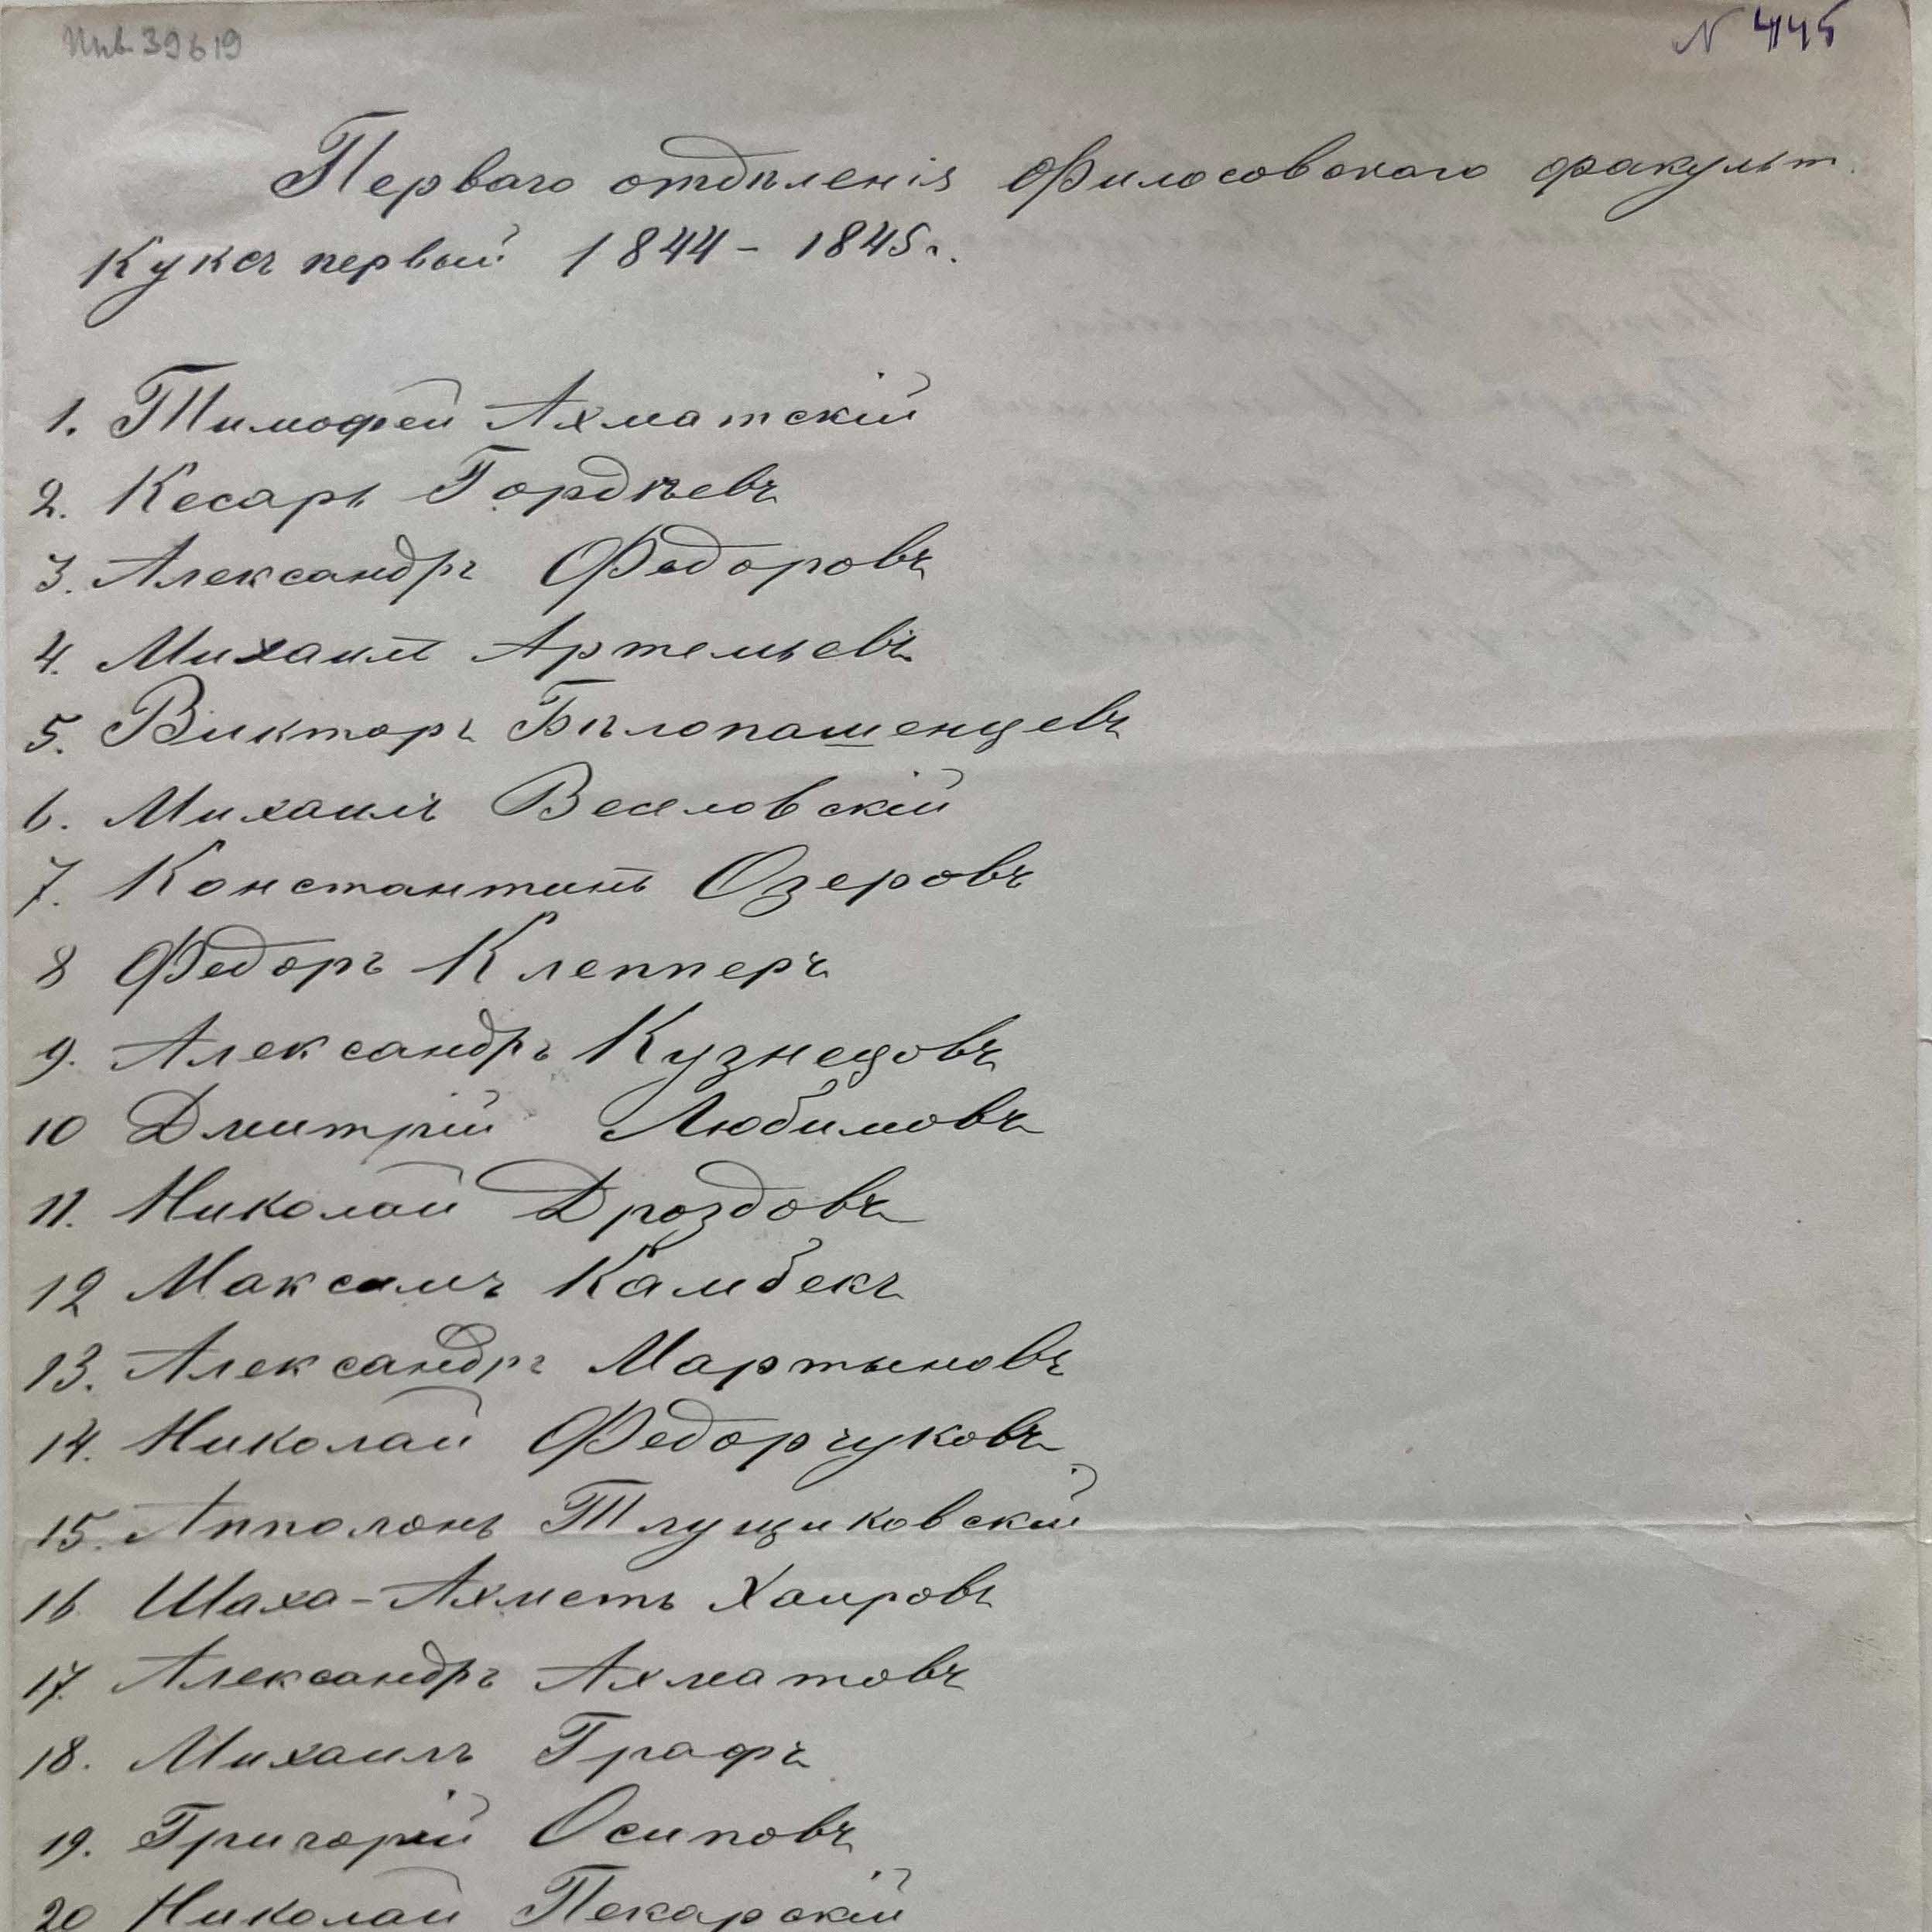 Инв 39619
N 445
Перваго отдѣленія Филосовскаго факульт.
Куксъ первый 1844 - 1845 г.
1. Тимофей Ахматскій
2. Кесарь Гордѣевъ
3. Александръ Федоровъ
4. Михаилъ Артемьевъ
5. Викторъ Бѣлопашенцевъ
6. Михаилъ Веселовскій
7. Константинъ Озеровъ
8 Федоръ Клепперъ
9. Александръ Кузнецовъ
10 Дмитрій Любимовъ
11. Николай Дроздовъ
12 Максимъ Камбекъ
13. Александръ Мартыновъ
14. Николай Федорчуковъ
15. Апполонъ Тлущиковскій
16 Шаха-Ахметъ Хаировъ
17. Александръ Ахматовъ
18. Михаилъ Графъ
19. Григорій Осиповъ
20 Николай Пекарскій